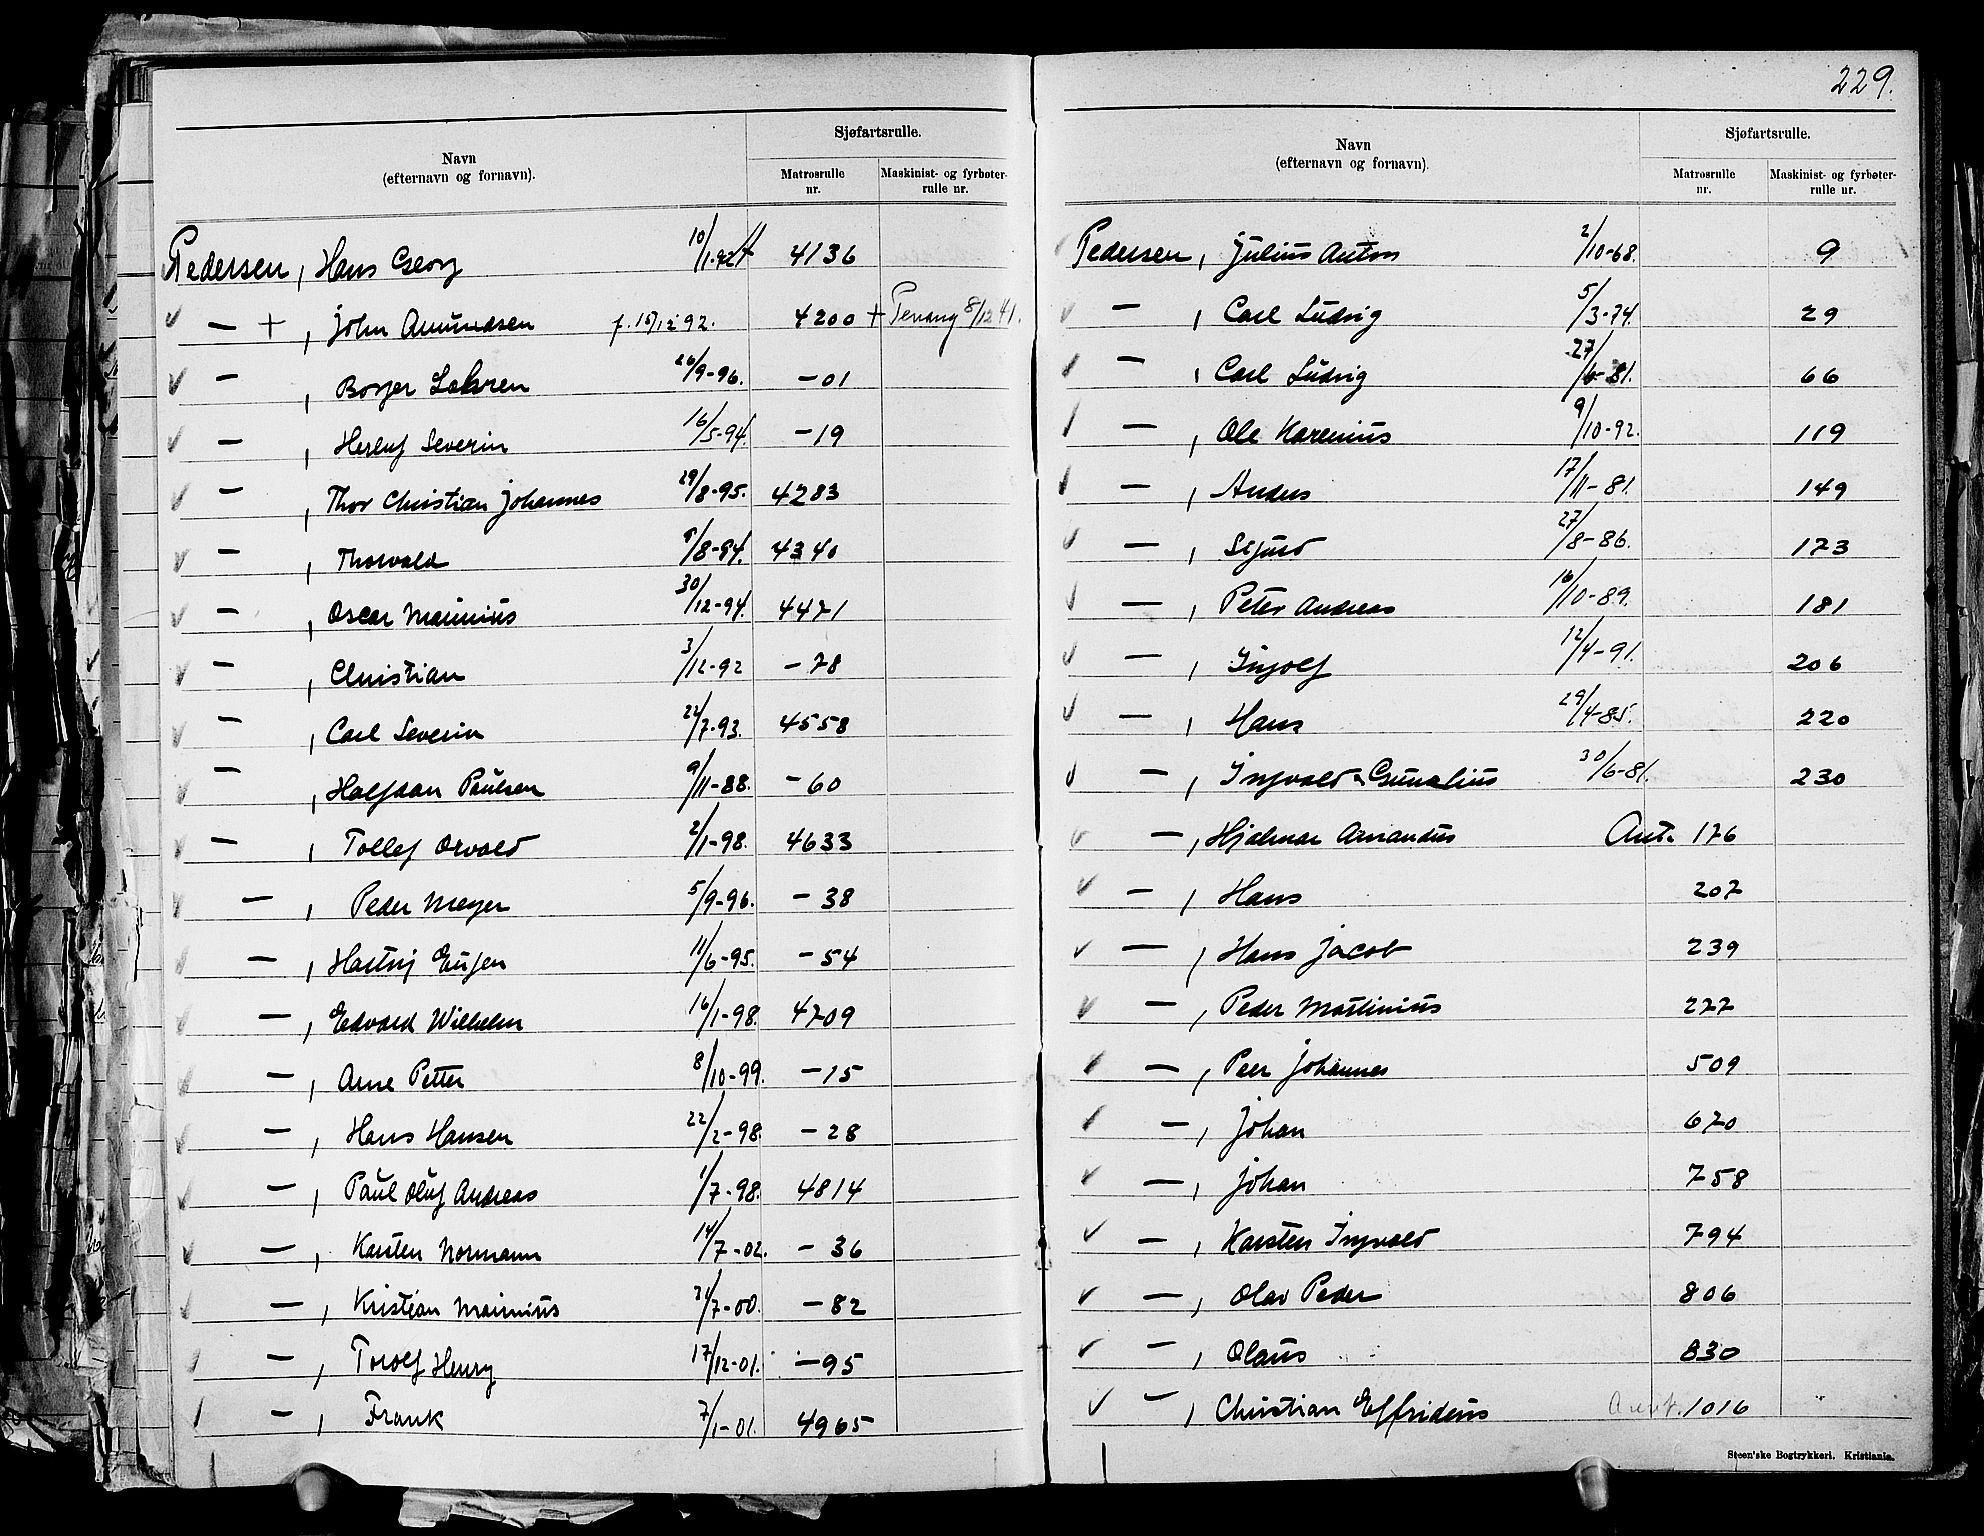 229.
Navn
(efternavn og fornavn).
Sjøfartsrulle.
Matrosrulle nr.
Maskinist- og fyrbøter-rulle nr.
Pedersen, Hans Georg 10/1-92 4136
— + , John Amundsen f. 15/12 92. 4200 + 8/12 41.
— , Borger 26/9-96. —01
— , Herluf Severin 16/5-94. —19
— , Thor Christian Johannes 29/8-95. 4283
— , Thorvald /8-94. 4340
— , Oscar Marinius 30/12-94. 4471
— , Christian 3/12-92 —78
— , Carl Severin 22/7-93. 4558
— , Halfdan Paulsen 9/11-88. —60
— , Tollef Orvald 2/1-98. 4633
— , Peder Meyer 5/9-96. —38
— , Hartvig Eugen 11/6-95. —54
— , Edvard Wilhelm 16/1-98. 4709
— , Arne Petter 8/10-99. —15
— , Hans Hansen 22/2-98. —28
— , Paul Oluf Andreas 1/7-98. 4814
— , Karsten Normann 14/7-02. —36
— , Kristian Marinius 21/7-00. —82
— , Torolf Henry 17/12-01. —95
— , Frank 7/1-01. 4965
Navn
(efternavn og fornavn).
Sjøfartsrulle.
Matrosrulle nr.
Maskinist- og fyrbøter-rulle nr.
Pedersen, Julius Anton 2/10-68. 9
— , Carl Ludvig 5/3-74. 29
— , Carl Ludvig 27/6-81. 66
— , Ole Karenius 9/10-92. 119
— , Anders 17/11-81. 149
— , Sigurd 27/8-86. 173
— , Peter Andreas 16/10-89. 181
— , Ingolf 12/4-91. 206
— , Hans 29/4-85. 220
— , Ingvald 30/6-81. 230
— , Hjalmar Amandus Ant. 176
— , Hans 207
— , Hans Jacob 239
— , Peder Martinius 277
— , Peer Johannes 509
— , Johan 670
— , Johan 758
— , Karsten Ingvald 794
— , Olav Peder 806
— , Olaus 830
— , Christian Elfridius 1016
Steen'ske Bogtrykkeri. Kristiania.